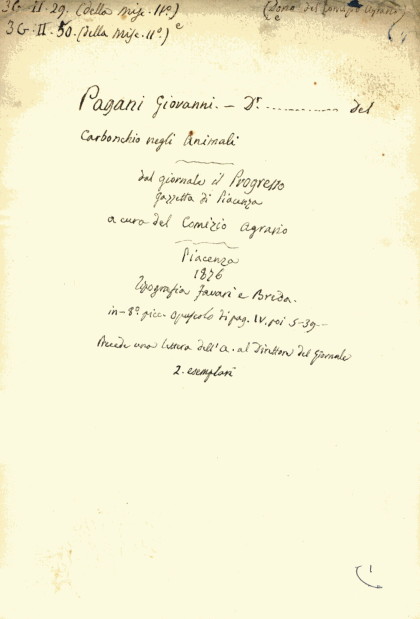 3G. II. 29. (della Misc. IIª.) (Dono del Comizio Agrario
3G. II. 50. (della Misc. IIª.) e
Pagani Giovanni. — Dr. ............... del
Carbonchio negli Animali
dal giornale il Progresso
gazzetta di Piacenza
a cura del Comizio Agrario
Piacenza
1876
Tipografia Favari e Breda.
in-8º. picc. opuscolo di pag. IV. poi 5-39.-
Precede una lettera dell'a. al Direttore del Giornale
2. esemplari